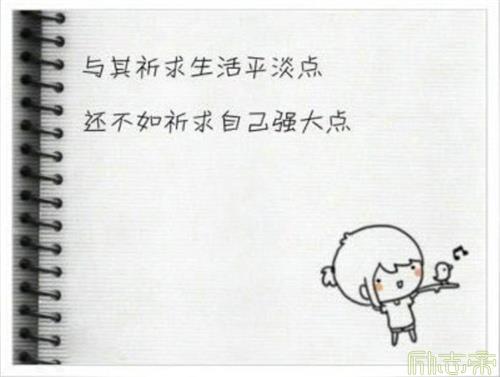 与其祈求生活平淡点
还不如祈求自己强大点
励志柔